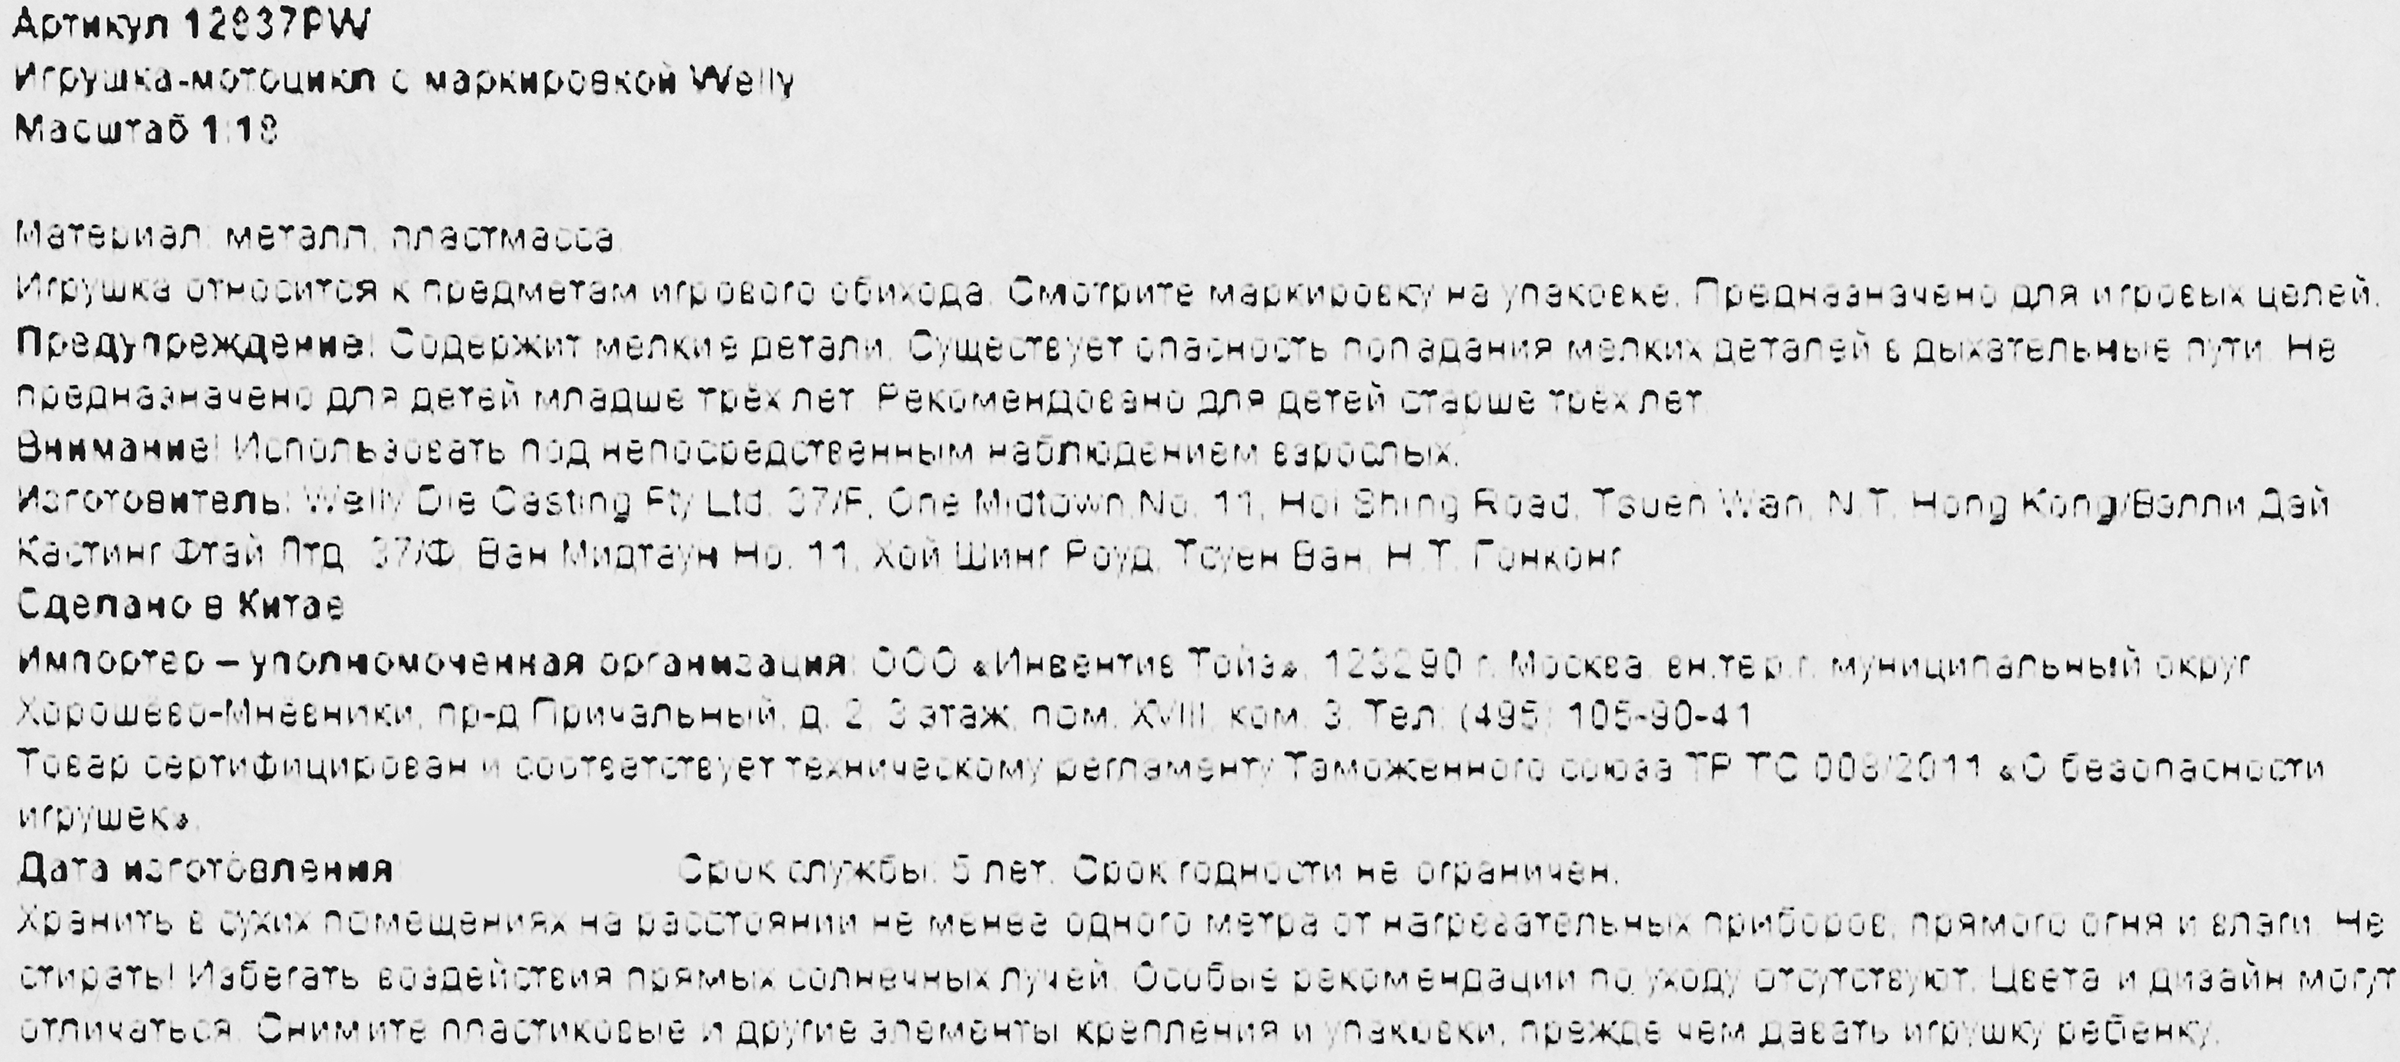 Артикул 12837PW
Игрушка-мотоцикл с маркировкой Welly
Масштаб 1:18
Материал: металл, пластмасса.
Игрушка относится к предметам игрового обихода. Смотрите маркировку на упаковке. Предназначено для игровых целей.
Предупреждение! Содержит мелкие детали. Существует опасность попадания мелких деталей в дыхательные пути. Не
предназначено для детей младше трёх лет. Рекомендовано для детей старше трёх лет.
Внимание! Использовать под непосредственным наблюдением взрослых.
Изготовитель: Welly Die Casting Fty Ltd. 37/F, One Midtown,No. 11, Hoi Shing Road, Tsuen Wan, N.T. Hong Kong/Вэлли Дай
Кастинг Фтай Лтд. 37/Ф, Ван Мидтаун Но. 11, Хой Шинг Роуд, Тсуен Ван, Н.Т. Гонконг
Сделано в Китае
Импортер – уполномоченная организация: ООО «Инвентив Тойз», 123290 г. Москва, вн.тер.г. муниципальный округ
Хорошёво-Мнёвники, пр-д Причальный, д. 2, 3 этаж, пом. XVIII, ком. 3. Тел: (495) 105-90-41
Товар сертифицирован и соответствует техническому регламенту Таможенного союза ТР ТС 008/2011 «О безопасности
игрушек».
Дата изготовления: Срок службы: 5 лет. Срок годности не ограничен.
Хранить в сухих помещениях на расстоянии не менее одного метра от нагревательных приборов, прямого огня и влаги. Не
стирать! Избегать воздействия прямых солнечных лучей. Особые рекомендации по уходу отсутствуют. Цвета и дизайн могут
отличаться. Снимите пластиковые и другие элементы крепления и упаковки, прежде чем давать игрушку ребенку.